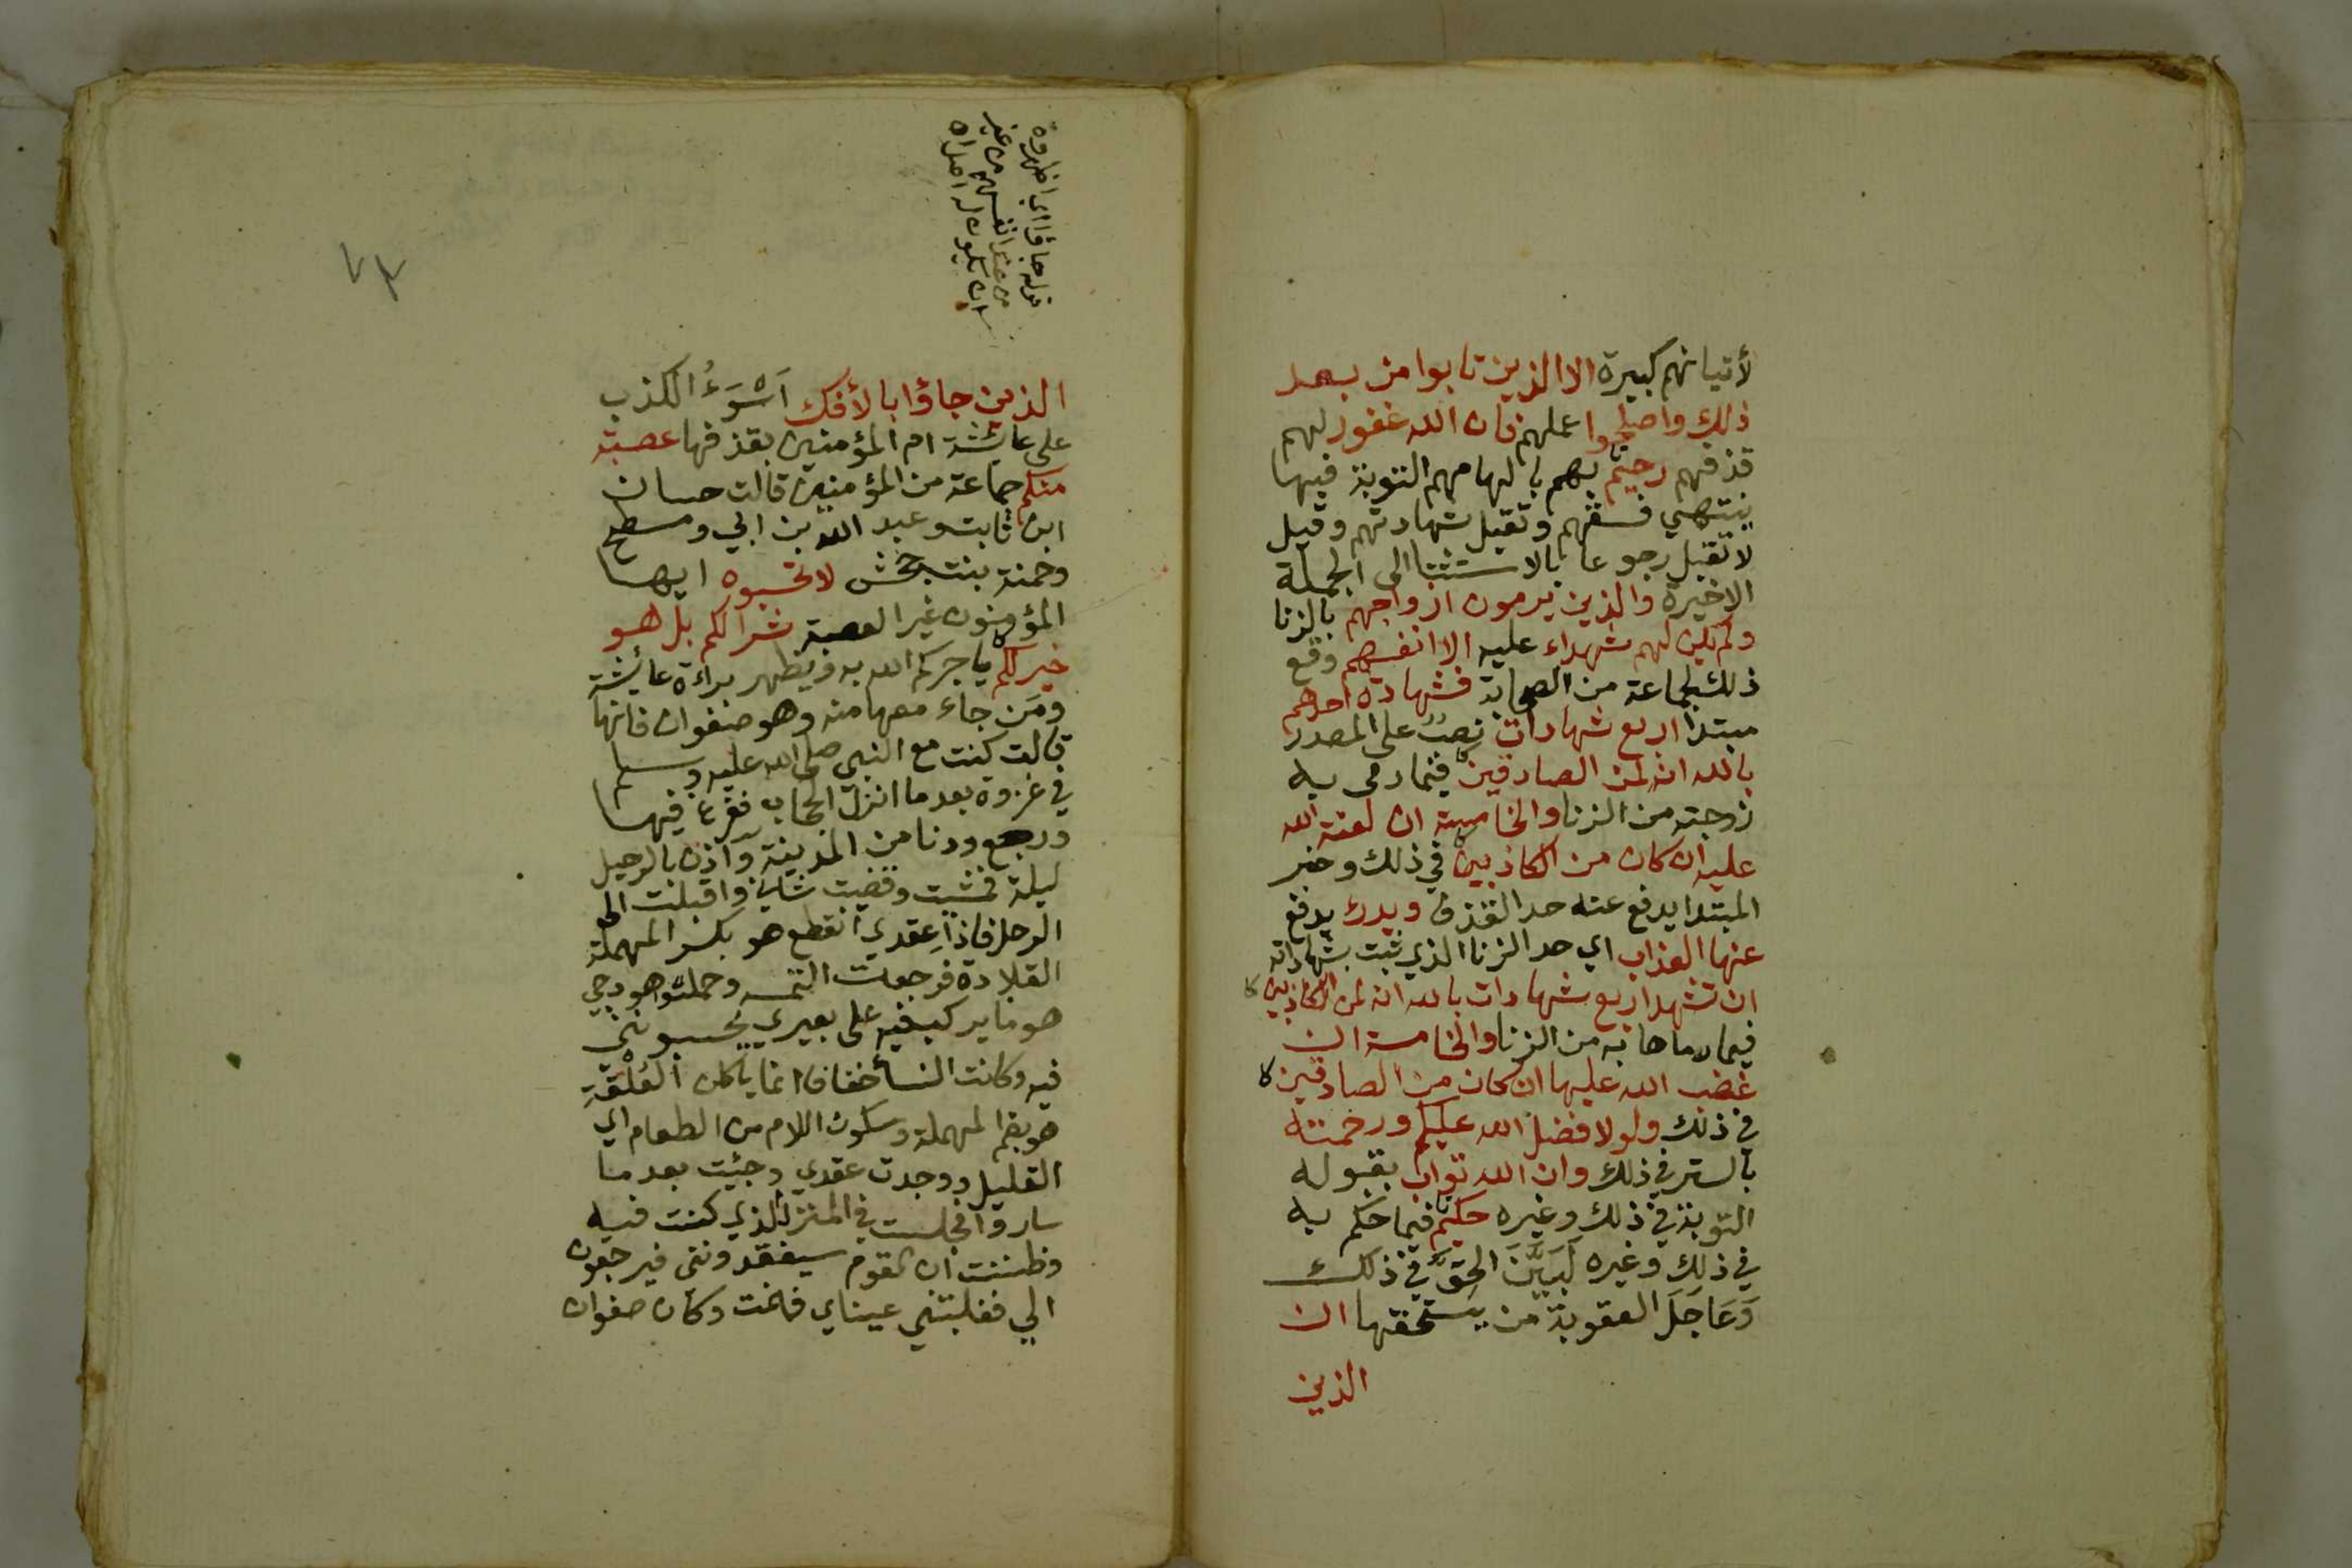 لأتيانهم كبيرة الا الذين تابوا من بعد
ذلك واصلحوا عملهم فان الله غفور لهم
قذفهم رحيم بهم بالهامهم التوبة فيها
ينتهي فسقهم وتقبل شهادتهم وقيل
لا تقبل رجوعا بالاستثنا الى الجملة
الاخيرة والذين يرمون ازواجهم بالزنا
ولم يكن لهم شهداء عليه الا انفسهم وقع
ذلك لجماعة من الصحابة فشهادة احدهم
مبتدا اربع شهادات نصب على المصدر
بالله انه لمن الصادقين فيما رمى به
زوجته من الزنا والخامسة ان لعنة الله
عليه ان كان من الكاذبين في ذلك وخبر
المبتدا يدفع عنه حد القذف ويدرؤ يدفع
عنها العذاب اي حد الزنا الذي ثبت بشهاداته
ان تشهد اربع شهادات بالله انه لمن الكاذبين
فيما رماها به من الزنا والخامسة ان
غضب الله عليها ان كان من الصادقين
في ذلك ولولا فضل الله عليكم ورحمته
بالستر في ذلك وان الله تواب بقبوله
التوبة في ذلك وغيره حكيم فيما حكم به
في ذلك وغيره لَبَيَّنَ الحق في ذلك
وَعَاجَلَ العقوبة من يستحقها ان
الذين
قوله جاؤا اي اظهروه
من عند انفسهم من غير
ان يكون له اصل اه
٧٣
الذين جاؤا بالأفك اَسْوَءُ الكذب
على عائشة ام المؤمنين بقذفها عصبة
منكم جماعة من المؤمنين قالت حسان
ابن ثابت وعبد الله بن ابي ومسطح
وحمنة بنت جحش لا تحسبوه ايها
المؤمنون غير العصبة شرا لكم بل هو
خير لكم ياجركم الله به ويظهر براءة عائشة
ومَن جاء معها منه وهو صفوان فانها
قالت كنت مع النبي صلى الله عليه وسلم
في غزوة بعدما انزل الحجاب ففرغ فيها
ورجع ودنا من المدينة وآذن بالرحيل
ليلة فمشيت وقضيت شاني واقبلت الى
الرحل فاذا عِقدي انقطع هو بكسر المهملة
القلادة فرجعت التمسه وحملوا هودجي
هو ما يركب فيه على بعيري يحسبونني
فيه وكانت النسأ خفافا انما ياكلن العُلْقَةِ
هو بضم المهملة وسكون اللام من الطعام اي
القليل ووجدت عقدي وجئت بعد ما
ساروا فجلست في المنزل الذي كنت فيه
وظننت ان القوم سيفقدونني فيرجعون
الي فغلبتني عيناي فنمت وكان صفوان